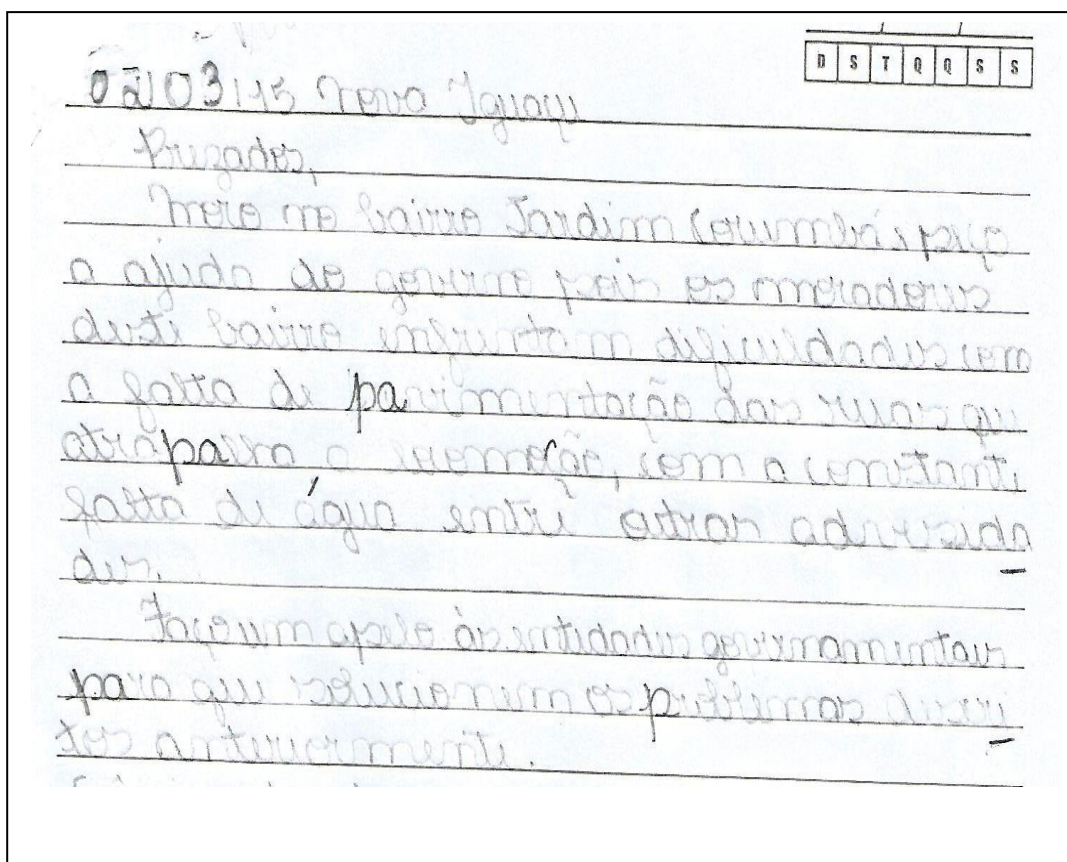 D S T Q Q S S
02/03/15 Nova Iguaçu
Prezados,
Moro no bairro Jardim Corumbá e peço
a ajuda do governo pois os moradores
deste bairro enfrentam dificuldades com
a falta de pavimentação das ruas que
atrapalha a locomoção, com a constante
falta de água entre outras adversida
des.
Faço um apelo às entidades governamentais
para que solucionem os problemas descri
tos anteriormente.